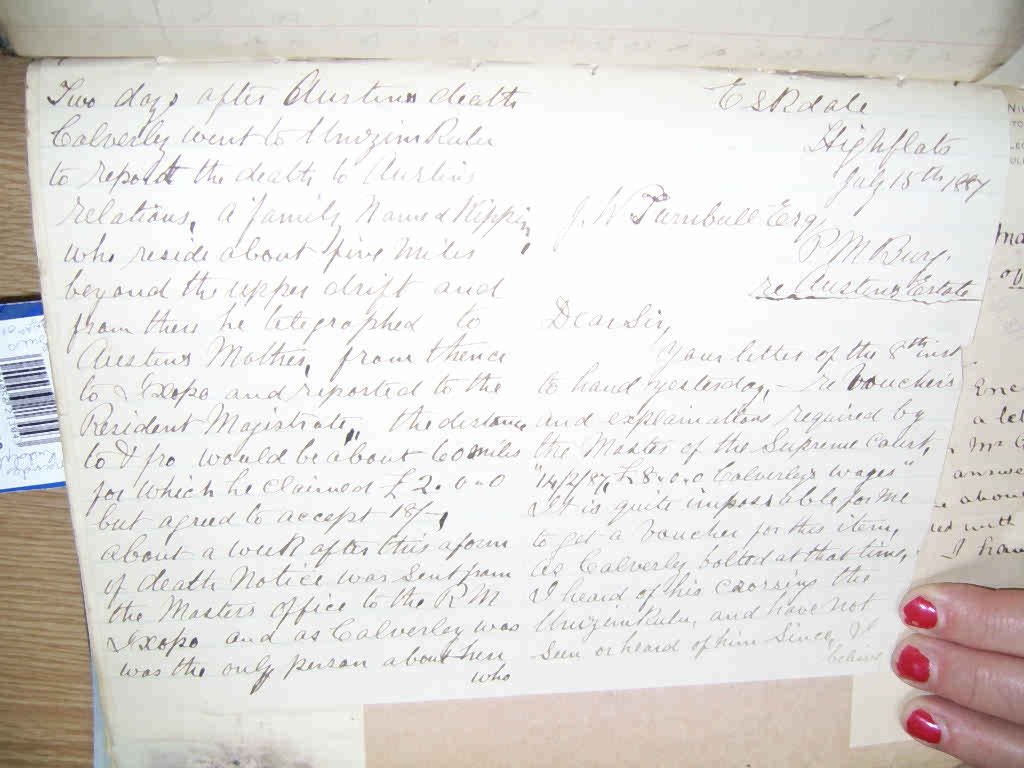 Eskdale
Highflats
July 15th 1887
J. W Turnbull Esq,
P M Burg.
re Austins Estate
Dear Sir,
Your letter of the 8th inst
to hand yesterday, - re Vouchers
and explainations required by
the Master of the Supreme Court,
"14/2/87, £8.0.0 Calverley's wages"
It is quite impossable for me
to get a Voucher for this item,
as Calverley bolted at that time,
I heard of his crossing the
Umzimkulu, and have not
seen or heard of him since, I
believe
Two days after Austins death
Calverley went to Umzimkulu
to report the death to Austins
relations, a family named Kippin,
who reside about five miles
beyond the upper drift and
from there he telegraphed to
Austins Mother, from thence
to Ixopo and reported to the
Resident Magistrate, the distance
to & fro would be about 60 miles
for which he claimed £2.0.0
but agreed to accept 18/-,
about a week after this a form
of death Notice was sent from
the Masters office to the R M
Ixopo and as Calverley was
was the only person about here
who